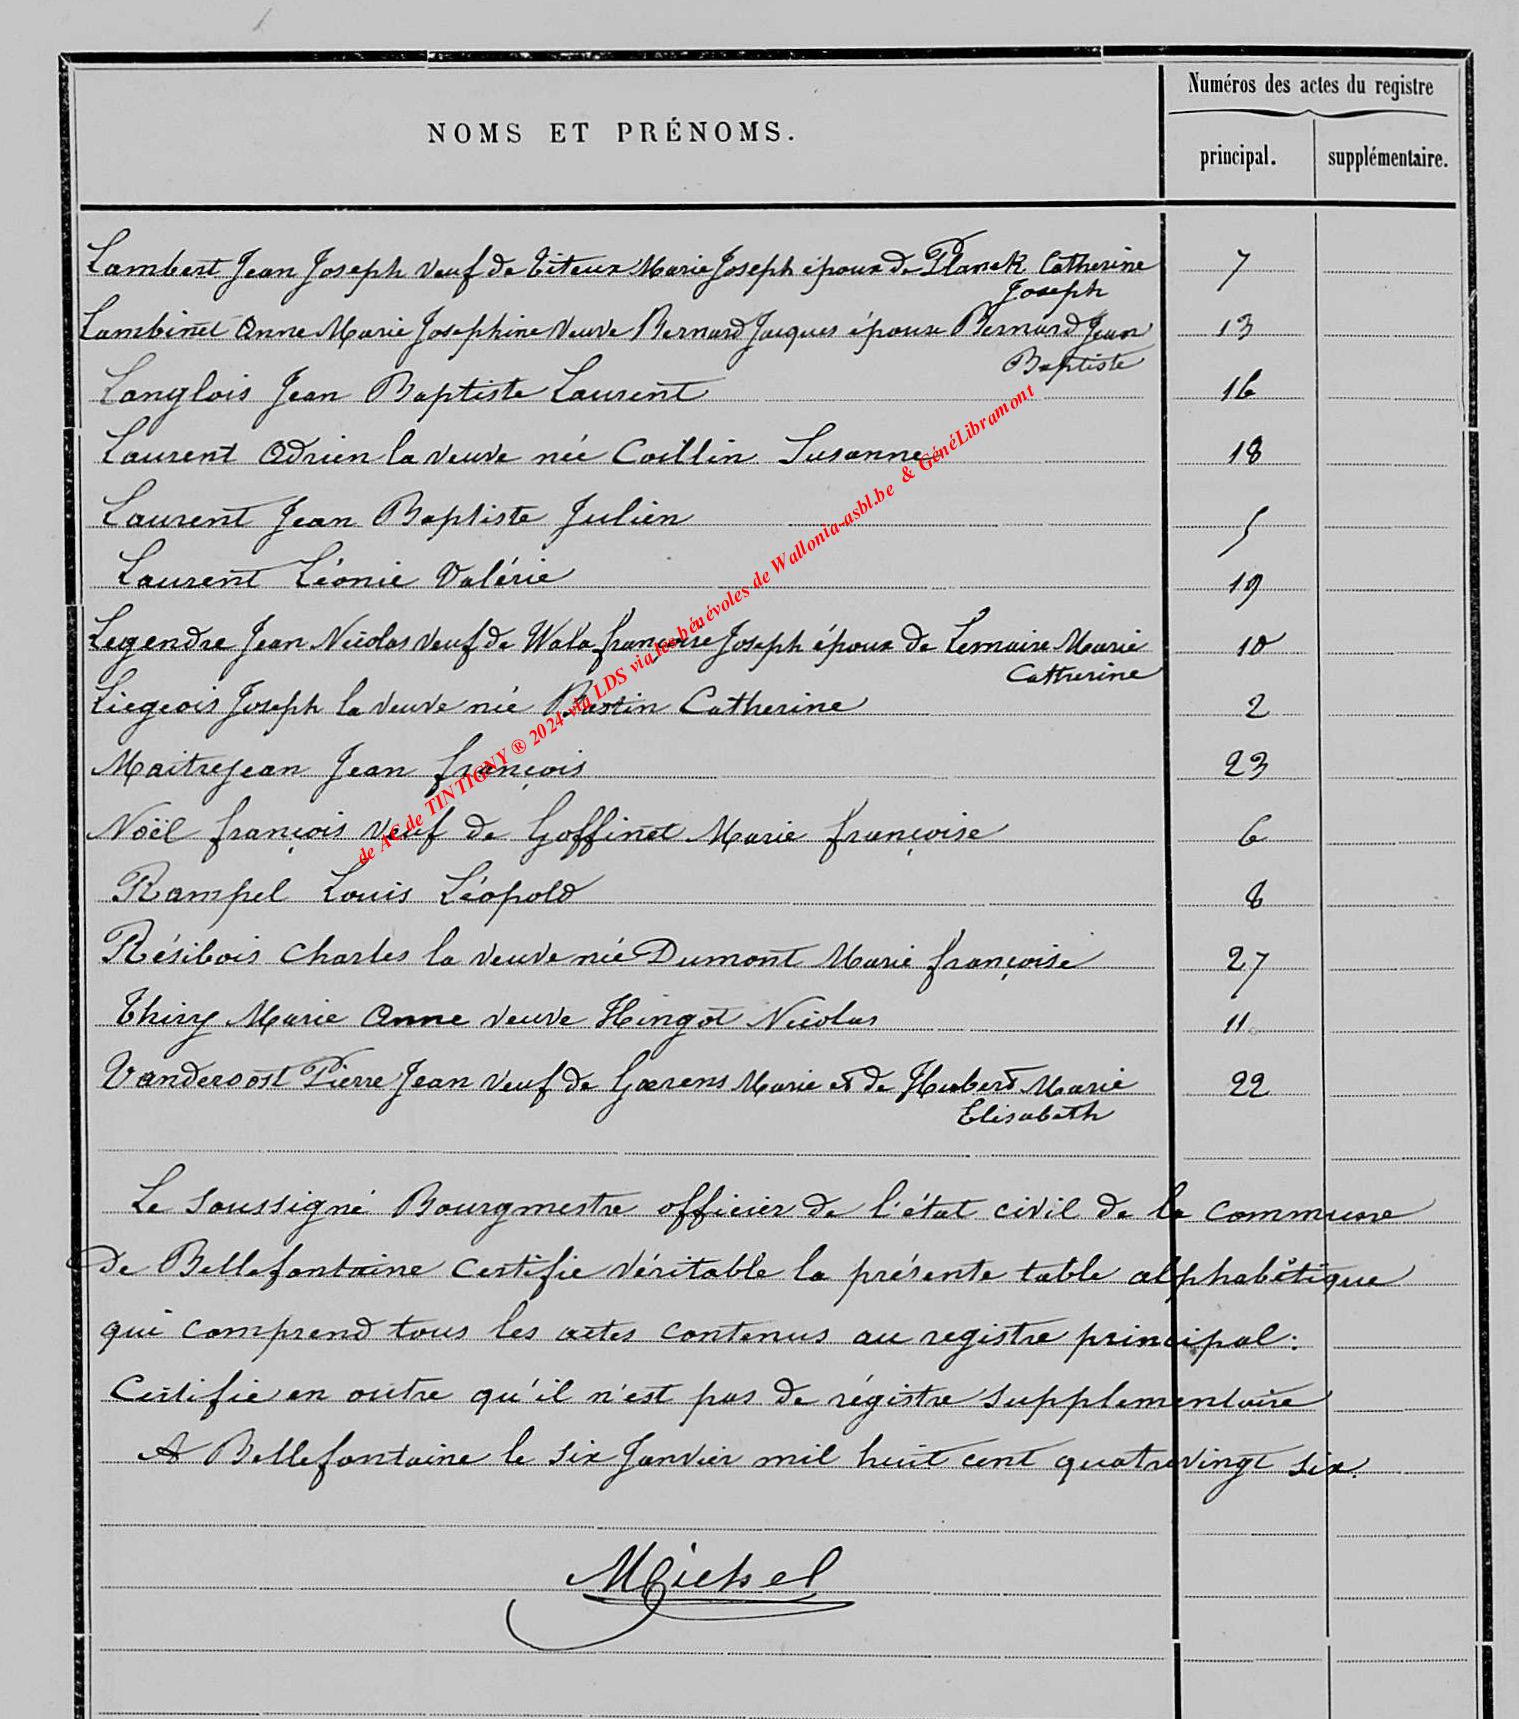 Numéros des actes du registre
NOMS ET PRÉNOMS.
principal. supplémentaire.
Lambert Jean Joseph veuf de Titeux Marie Joseph époux de Planck Catherine 7
Joseph
Lambinet Anne Marie Josephine veuve Bernard Jacques épouse Bernard Jean 13
Baptiste
Langlois Jean Baptiste Laurent 16
Laurent Adrien la veuve née Collin Susanne 18
Laurent Jean Baptiste Julien 5
Laurent Léonie Valérie 19
Legendre Jean Nicolas veuf de Wala françoise Joseph époux de Lemaire Marie 10
Catherine
Liegeois Joseph la veuve née Bastin Catherine 2
Maitrejean Jean françois 23
Noël françois veuf de Goffinet Marie françoise 6
Rampel Louis Léopold 8
Résibois Charles la veuve née Dumont Marie françoise 27
Thiry Marie Anne veuve Hingot Nicolas 11
Vanderoost Pierre Jean veuf de Gœrens Marie et de Hubert Marie 22
Elisabeth
Le soussigné Bourgmestre officier de l'état civil de la commune
de Bellefontaine certifie véritable la présente table alphabétique
qui comprend tous les actes contenus au registre principal.
Certifie en outre qu'il n'est pas de régistre supplementaire
A Bellefontaine le six Janvier mil huit cent quatrevingt six.
Michel
de AC de TINTIGNY ® 2024 via LDS via les bénévoles de Wallonia-asbl.be & GénéLibramont